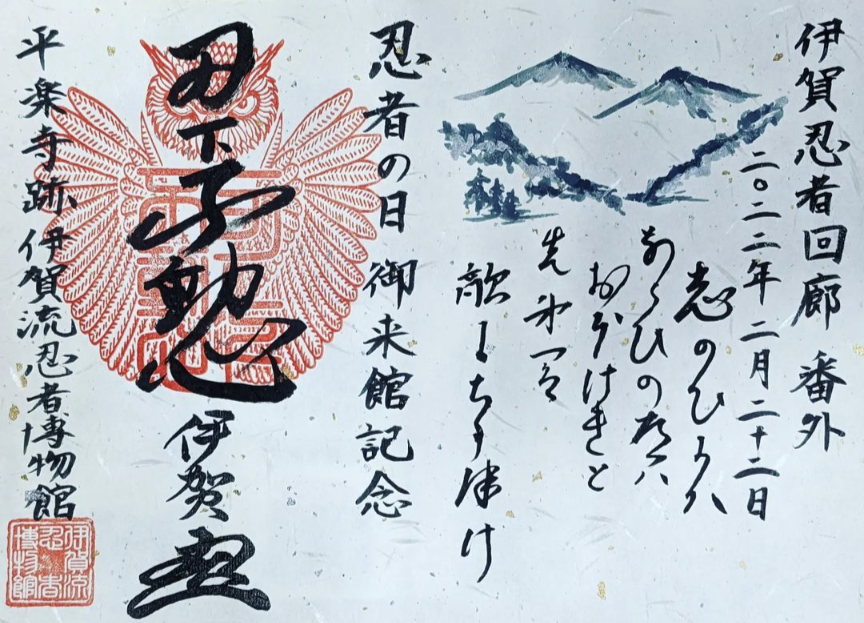 伊賀忍者回廊 番外
二〇二二年二月二十二日
志のひにハ
ならひの道ハ
おほけれと
先第一ハ
敵にちか津け
忍者の日 御来館記念
刃下不動心
伊賀
平楽寺跡 伊賀流忍者博物館
伊賀流
忍者
博物館